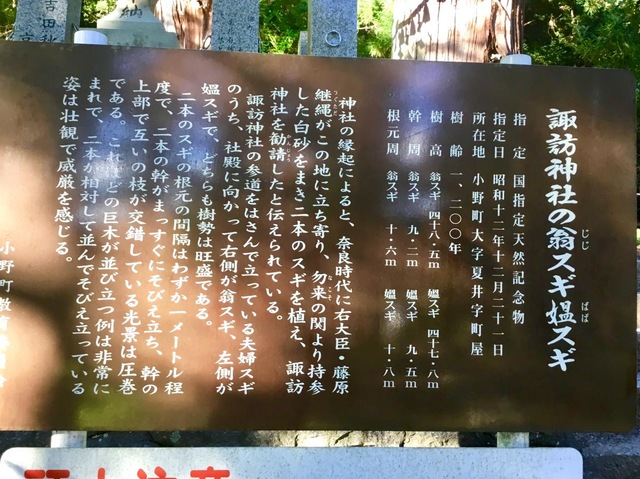 諏訪神社の翁スギ媼スギ
じじ
ばば
指定 国指定天然記念物
指定日 昭和十二年十二月二十一日
所在地 小野町大字夏井字町屋
樹齢 一、二〇〇年
樹高 翁スギ 四十八・五m 媼スギ 四十七・八m
幹周 翁スギ 九・二m 媼スギ 九・五m
根元周 翁スギ 十・六m 媼スギ 十・八m
神社の縁起によると、奈良時代に右大臣・藤原
継縄がこの地に立ち寄り、勿来の関より持参
した白砂をまき二本のスギを植え、諏訪
神社を勧請したと伝えられている。
諏訪神社の参道をはさんで立っている夫婦スギ
のうち、社殿に向かって右側が翁スギ、左側が
媼スギで、どちらも樹勢は旺盛である。
二本のスギの根元の間隔はわずか一メートル程
度で、二本の幹がまっすぐにそびえ立ち、幹の
上部で互いの枝が交錯している光景は圧巻
である。これほどの巨木が並び立つ例は非常に
まれで、二本が相対して並んでそびえ立っている
姿は壮観で威厳を感じる。
小野町教育委員会